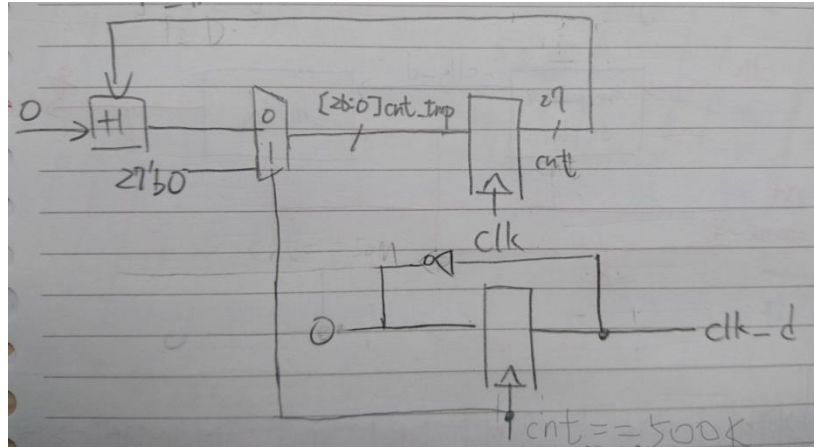 0
+1
0
1
27'b0
[26:0]cnt_tmp
27
cnt
clk
0
clk_d
cnt==500k